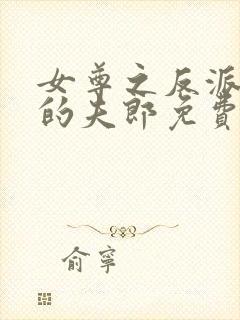 女尊之反派
的夫郎免費
俞寧